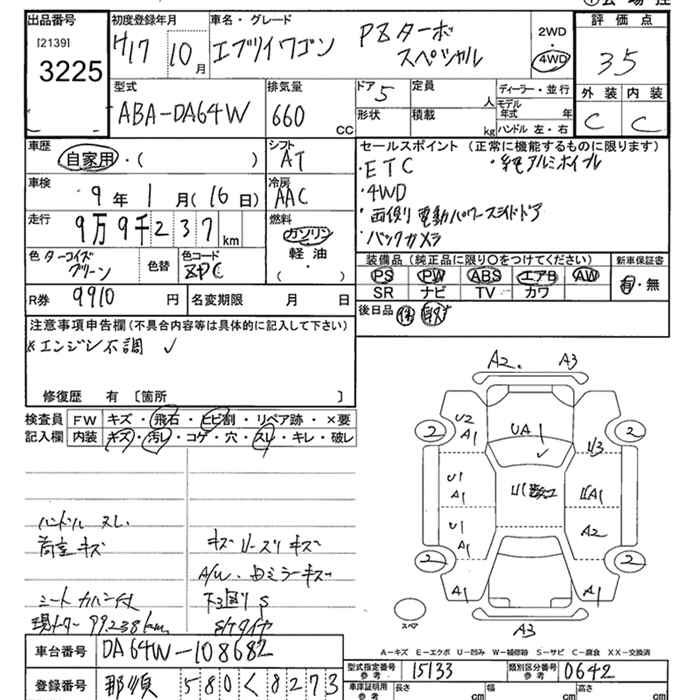 出品番号
[2139]
3225
初度登録年月
H17 10月
車名・グレード
エブリイワゴン PZターボ
スペシャル
2WD
・
4WD
評価点
3.5
外装 内装
C C
型式
ABA-DA64W
排気量
660 CC
ドア 5
定員 人
形状
積載 kg
ディーラー・並行
モデル
年式 年
ハンドル 左・右
車歴
自家用・( )
シフト
AT
車検
9年1月(16日)
冷房
AAC
走行
9万9千237km
燃料
ガソリン
軽油
( ・ )
色 ターコイズ
グリーン
色替
色コード
R券 9910円
名変期限 月 日
セールスポイント(正常に機能するものに限ります)
・ETC ・純アルミホイル
・4WD
・両側電動パワースライドドア
・バックカメラ
装備品(純正品に限り○をつけてください)
PS PW ABS エアB AW
SR ナビ TV カワ
新車保証書
有・無
後日品 保 取
注意事項申告欄(不具合内容等は具体的に記入して下さい)
*エンジン不調 ✓
修復歴 有〔箇所 〕
検査員
記入欄
FW キズ・飛石・ヒビ割・リペア跡・×要
内装 キズ・汚レ・コゲ・穴・スレ・キレ・破レ
ハンドル スレ
荷室キズ
シートカバー付
現メーター 99,238km
キズ
A/W・ミラーキズ
下廻りS
S/Tタイヤ
A2 A3
U2
A1
2
UA1
✓
2
U3
U1
A1
U1
A1
A2
2
A1
2
A1
A3
スペア
A−キズ E−エクボ U−凹み W−補修跡 S−サビ C−腐食 XX−交換済
車台番号 DA64W-108682
登録番号 那須 580 く 8273
型式指定番号
参考
15133
類別区分番号
参考
0642
車庫証明用
参考
長さ cm
幅 cm
高さ cm